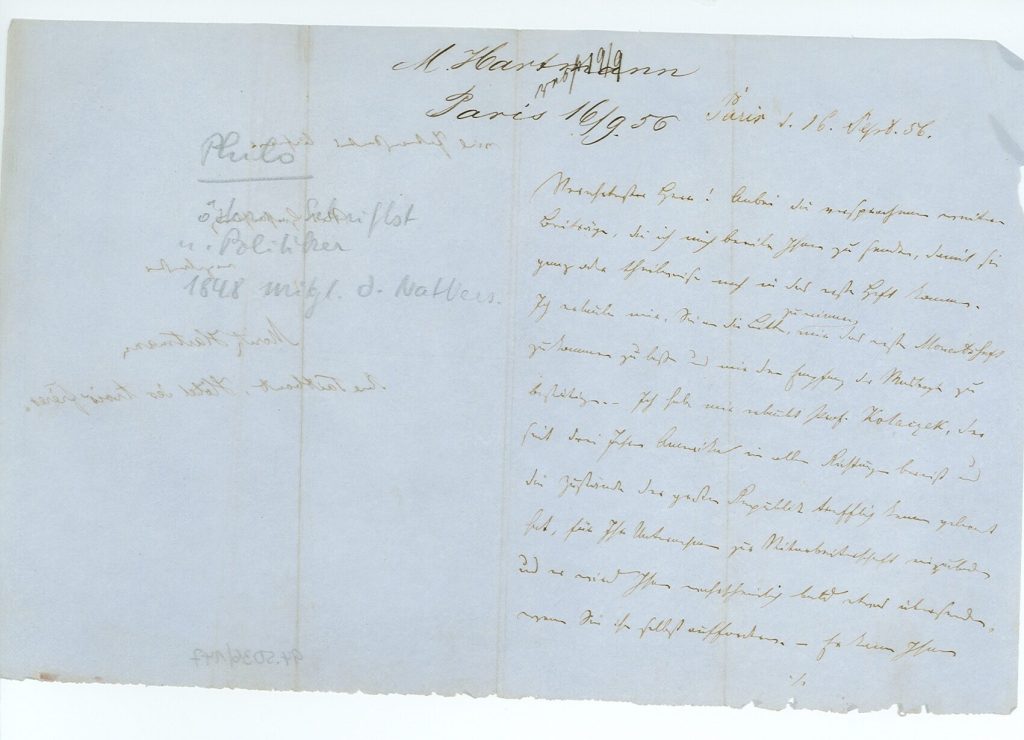 M. Hartmann
19/9
Paris 16/9 56
Paris d. 16. Sept. 56.
Philo
Schriftst
u. Politiker
1848 Mitgl. d. NatVers.
Moritz Hartmann,
Hotel des trois frères.
Verehrtester Herr! Anbei die versprochenen weiteren
Beiträge, die ich mich beeile Ihnen zu senden, damit sie
ganz oder theilweise noch in das erste Heft kommen.
Ich erlaube mir, Sie an die Bitte zu erinnern, mir das erste Monatsheft
zukommen zu lassen und mir den Empfang der Manuskripte zu
bestätigen. – Ich habe mir erlaubt Prof. Kolaczek, der
seit drei Jahren Amerika in allen Richtungen bereist und
die Zustände der großen Republik trefflich kennen gelernt
hat, für Ihr Unternehmen zur Mitarbeiterschaft einzuladen
und er wird Ihnen wahrscheinlich bald etwas übersenden,
wenn Sie ihn selbst auffordern. – Er kann Ihnen
./.
94.5036/147